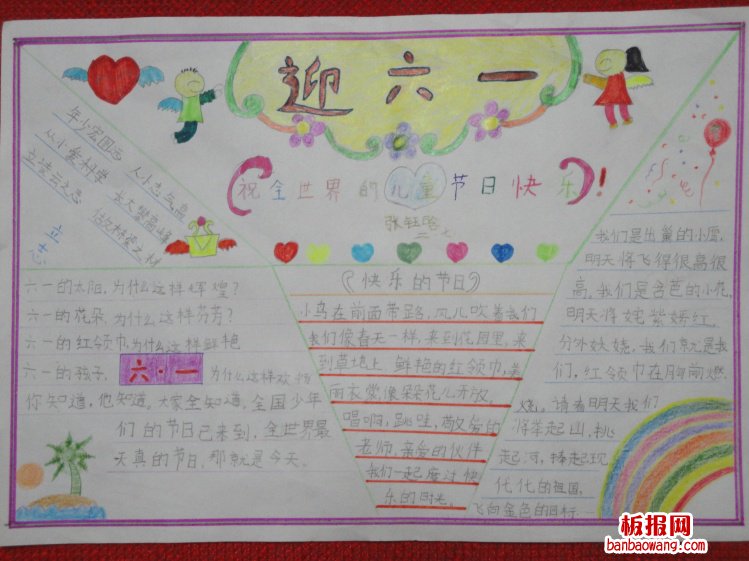 迎六一
祝全世界的儿童节日快乐!
年少宏图远
从小爱科学
立凌云之志
从小志气高
长大攀高峰
做栋梁之材
立志
六一的太阳,为什么这样辉煌?
六一的花朵,为什么这样芬芳?
六一的红领巾为什么这样鲜艳
六一的孩子,六·一为什么这样欢畅
你知道,他知道。大家全知道,全国少年
们的节日已来到,全世界最
天真的节日,那就是今天。
快乐的节日
小鸟在前面带路,风儿吹着我们
我们像春天一样,来到花园里,来
到草地上 鲜艳的红领巾,美
丽衣裳像朵朵花儿开放。
唱啊,跳哇,敬爱的
老师,亲爱的伙伴
我们一起度过快
乐的时光。
我们是出巢的小鹰,
明天将飞得很高很
高。我们是含苞的小花,
明天将姹紫嫣红,
分外妖娆,我们就是我
们,红领巾在胸前燃
烧。请看明天我们
将举起山,挑
起河,捧起现
代化的祖国,
飞向金色的目标.
板报网
banbaowang.com